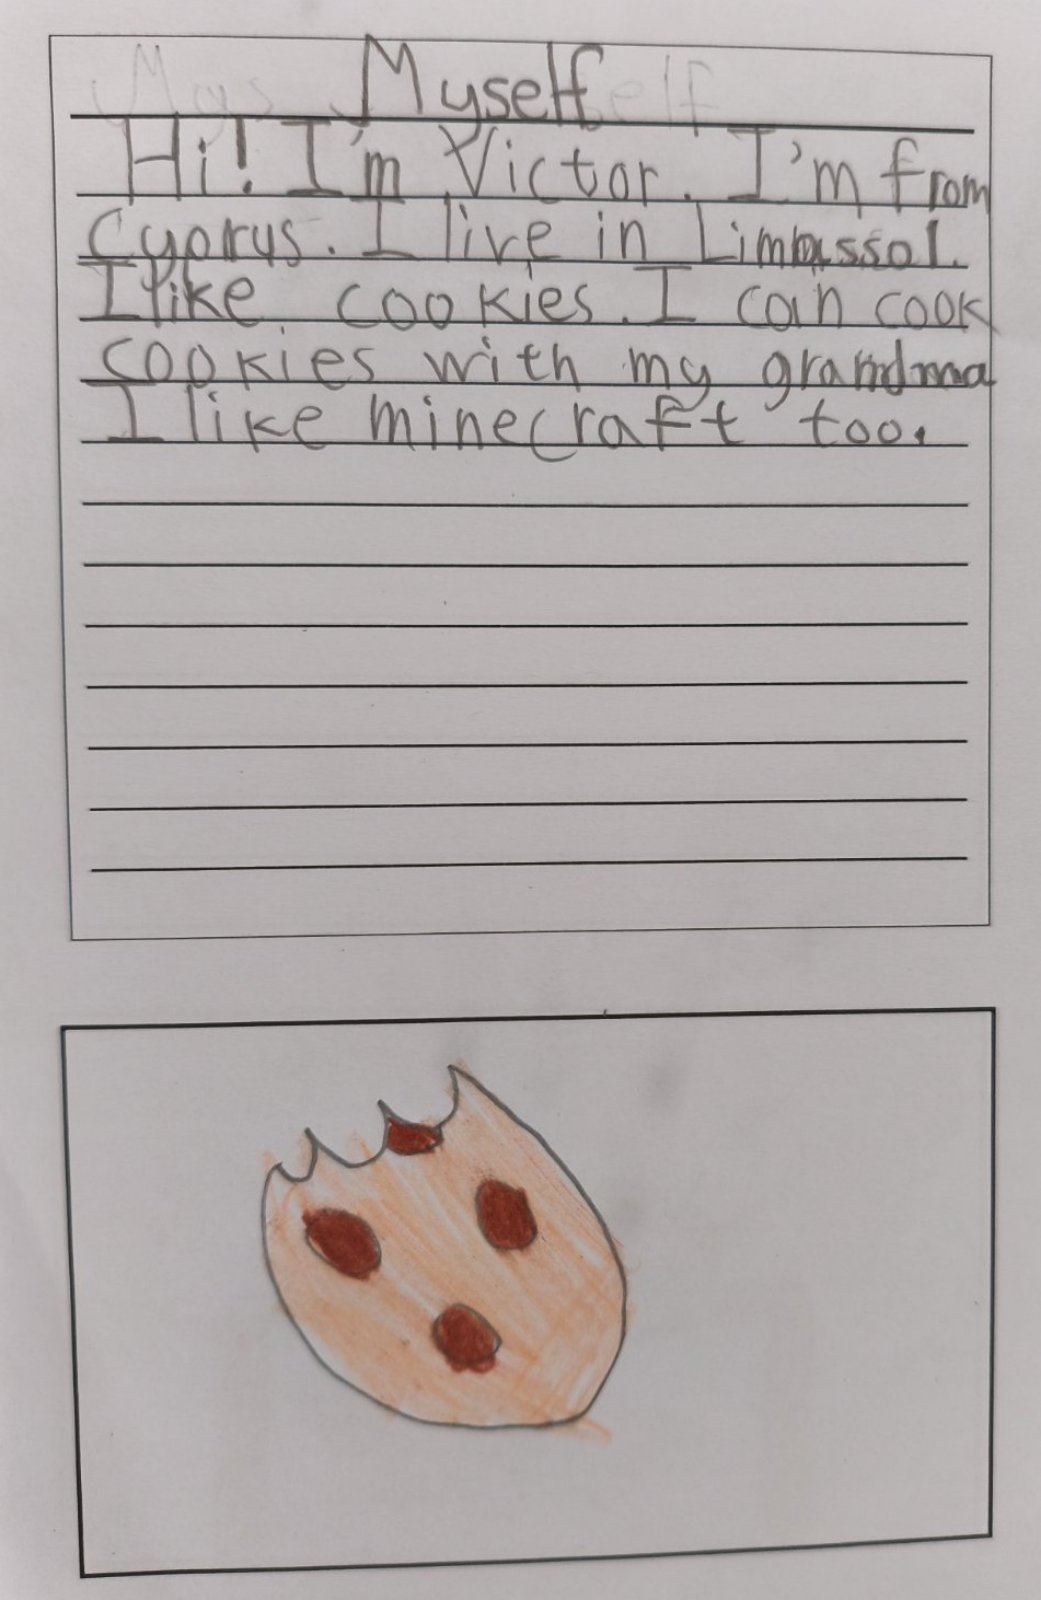 Myself
Hi! I'm Victor. I'm from
Cyprus. I live in Limassol.
I like cookies. I can cook
cookies with my grandma
I like minecraft too.